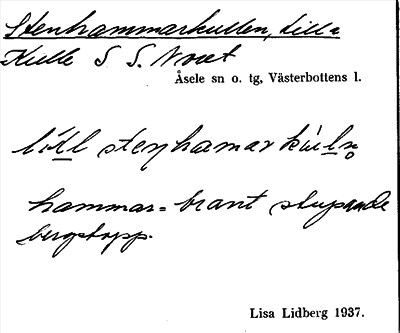 Stenhammarkullen, Lill-
Kulle S S. Noret
Åsele sn o. tg, Västerbottens l.
lill stenhamar kul
hammar = brant stupande
bergstopp.
Lisa Lidberg 1937.